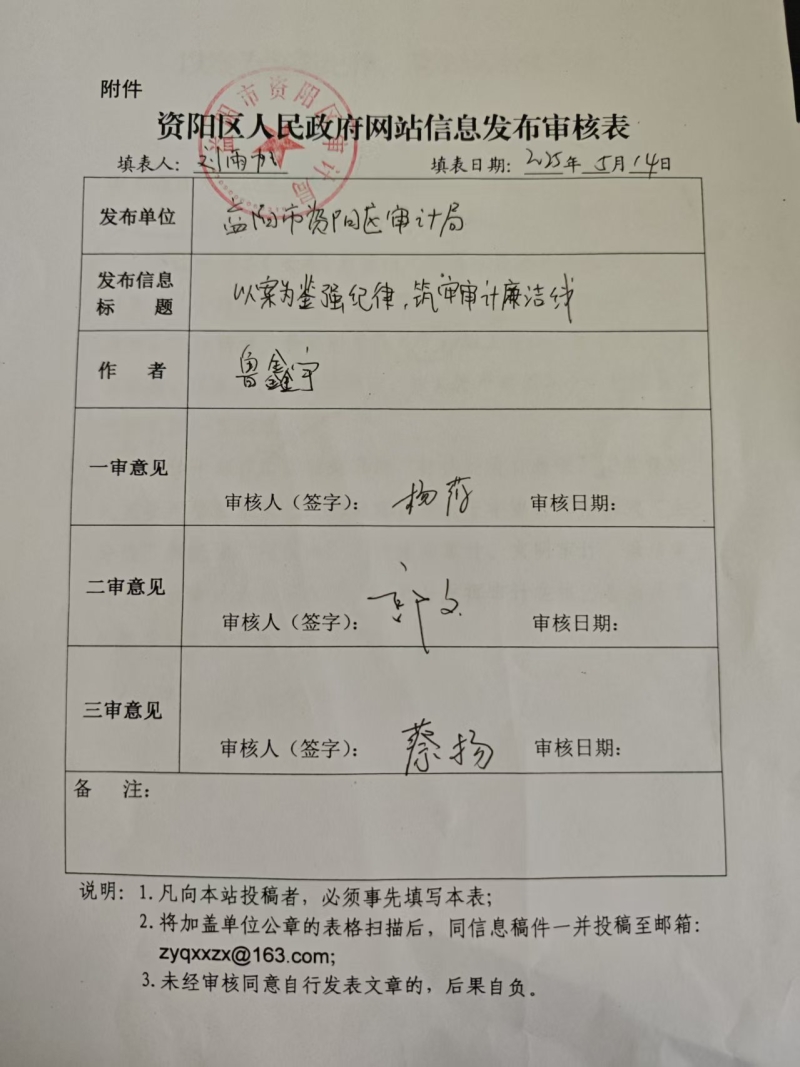 附件
资阳区人民政府网站信息发布审核表
填表人： 填表日期：2025年5月14日
发布单位 益阳市资阳区审计局
发布信息标 题 以案为鉴强纪律，筑牢审计廉洁线
作 者 鲁鑫宇
一审意见 审核人（签字）： 杨 审核日期：
二审意见 审核人（签字）： 审核日期：
三审意见 审核人（签字）： 蔡扬 审核日期：
备 注：
说明：1. 凡向本站投稿者，必须事先填写本表；
2. 将加盖单位公章的表格扫描后，同信息稿件一并投稿至邮箱：
zyqxxzx@163.com;
3. 未经审核同意自行发表文章的，后果自负。